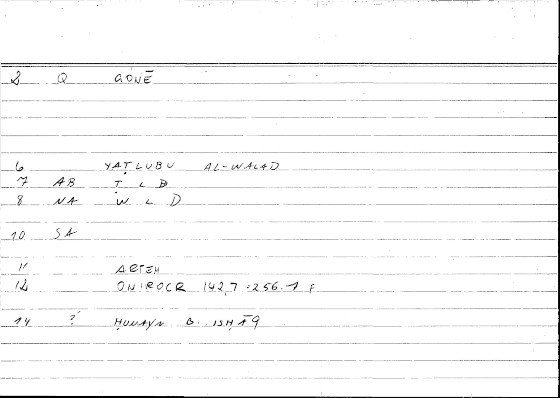 2 Q GONĒ
6 YAṬLUBU AL-WALAD
7 AB Ṭ L B
8 NA W L D
10 SA
11 ARTEM
12 ONIROCR 142,7 -256.1 F
14 ? ḤUNAYN B. ISḤĀQ